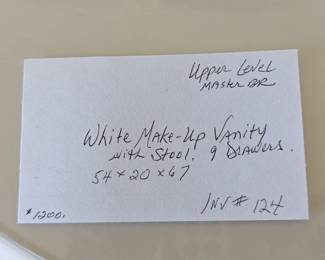 Upper Level
Master BR
White Make-Up Vanity
with Stool. 9 Drawers.
54 x 20 x 67
$1200.
INV # 124